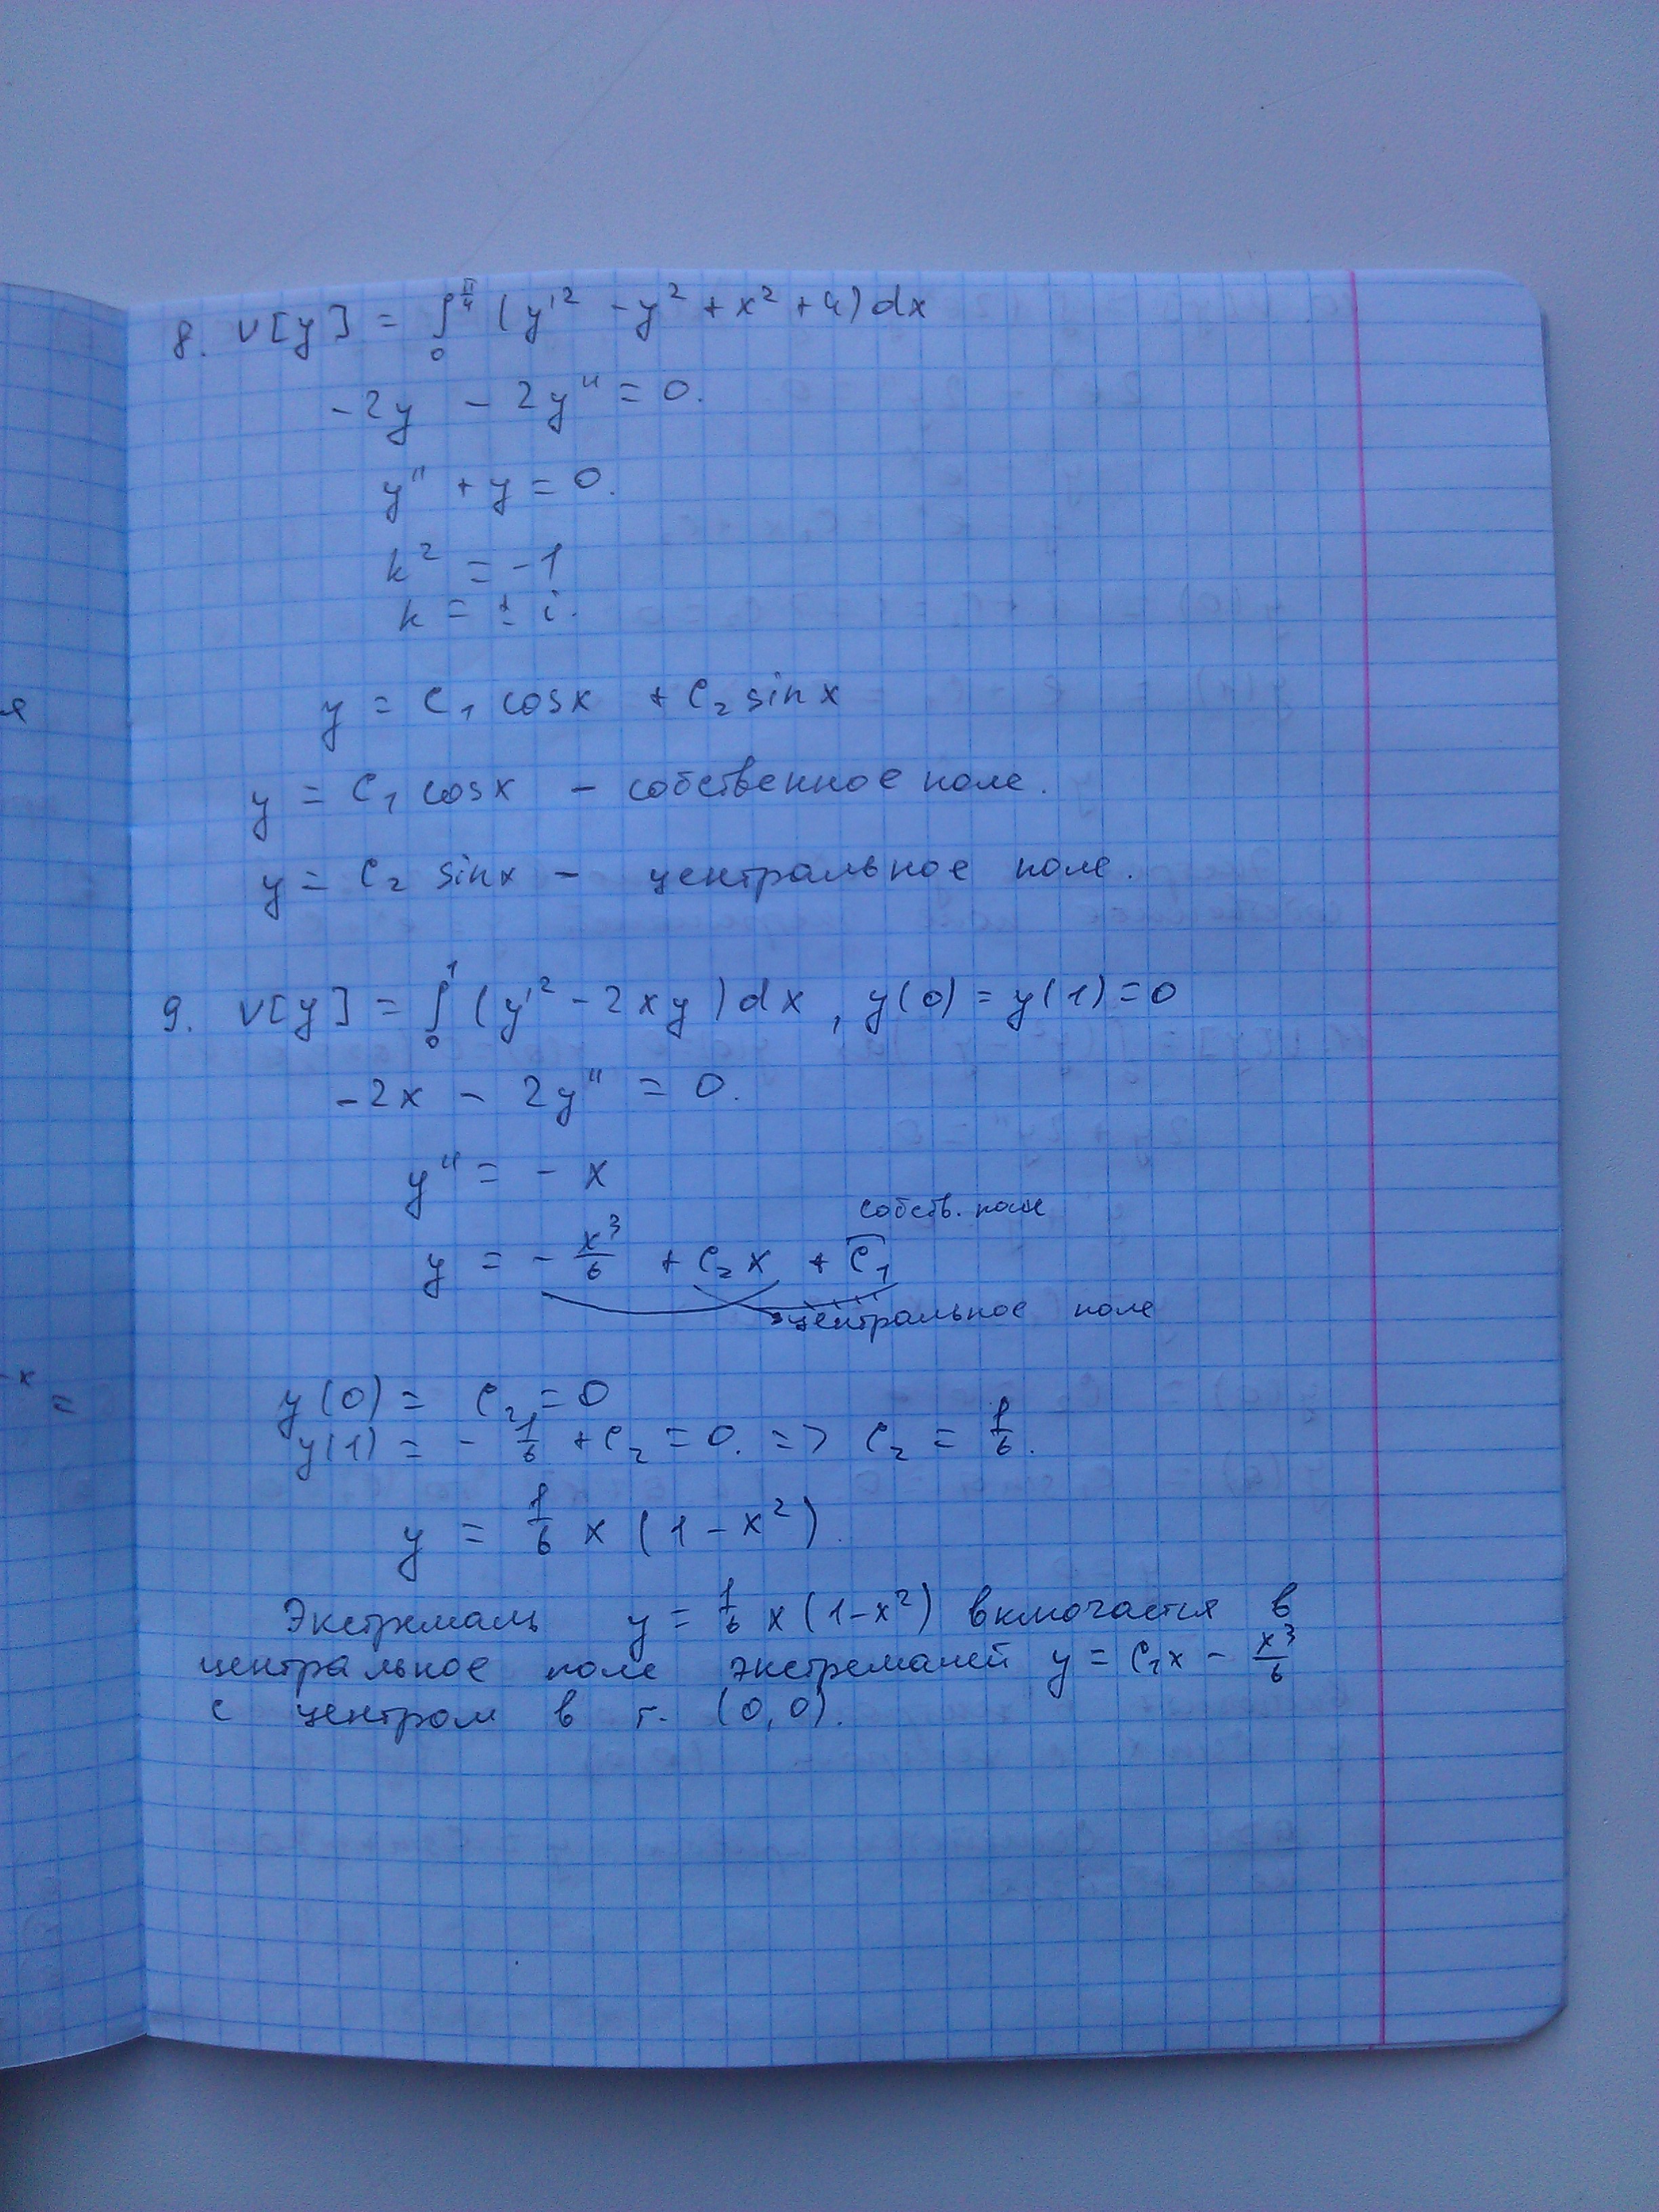 8. V[y] = ∫₀^{π/4} (y'² - y² + x² + 4) dx
-2y - 2y" = 0.
y" + y = 0.
k² = -1
k = ± i.
y = C₁ cosx + C₂ sinx
y = C₁ cosx - собственное поле.
y = C₂ sinx - центральное поле.
9. V[y] = ∫₀¹ (y'² - 2xy) dx, y(0) = y(1) = 0
-2x - 2y" = 0.
y" = - x
собств. поле
y = - x³/6 + C₂x + C₁
центральное поле
y(0) = C₂ = 0
y(1) = - 1/6 + C₂ = 0. => C₂ = 1/6.
y = 1/6 x (1 - x²).
Экстремаль y = 1/6 x (1-x²) включается в
центральное поле экстремалей y = C₁x - x³/6
с центром в т. (0,0).
я
-x =